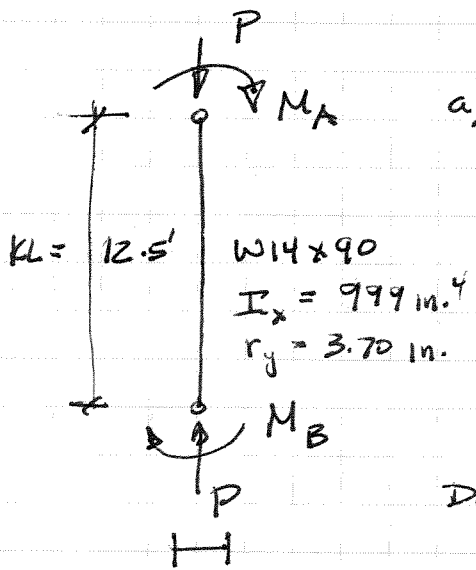 P
M_A
a,
KL = 12.5' W14x90
I_x = 999 in.⁴
r_y = 3.70 in.
M_B
P
D